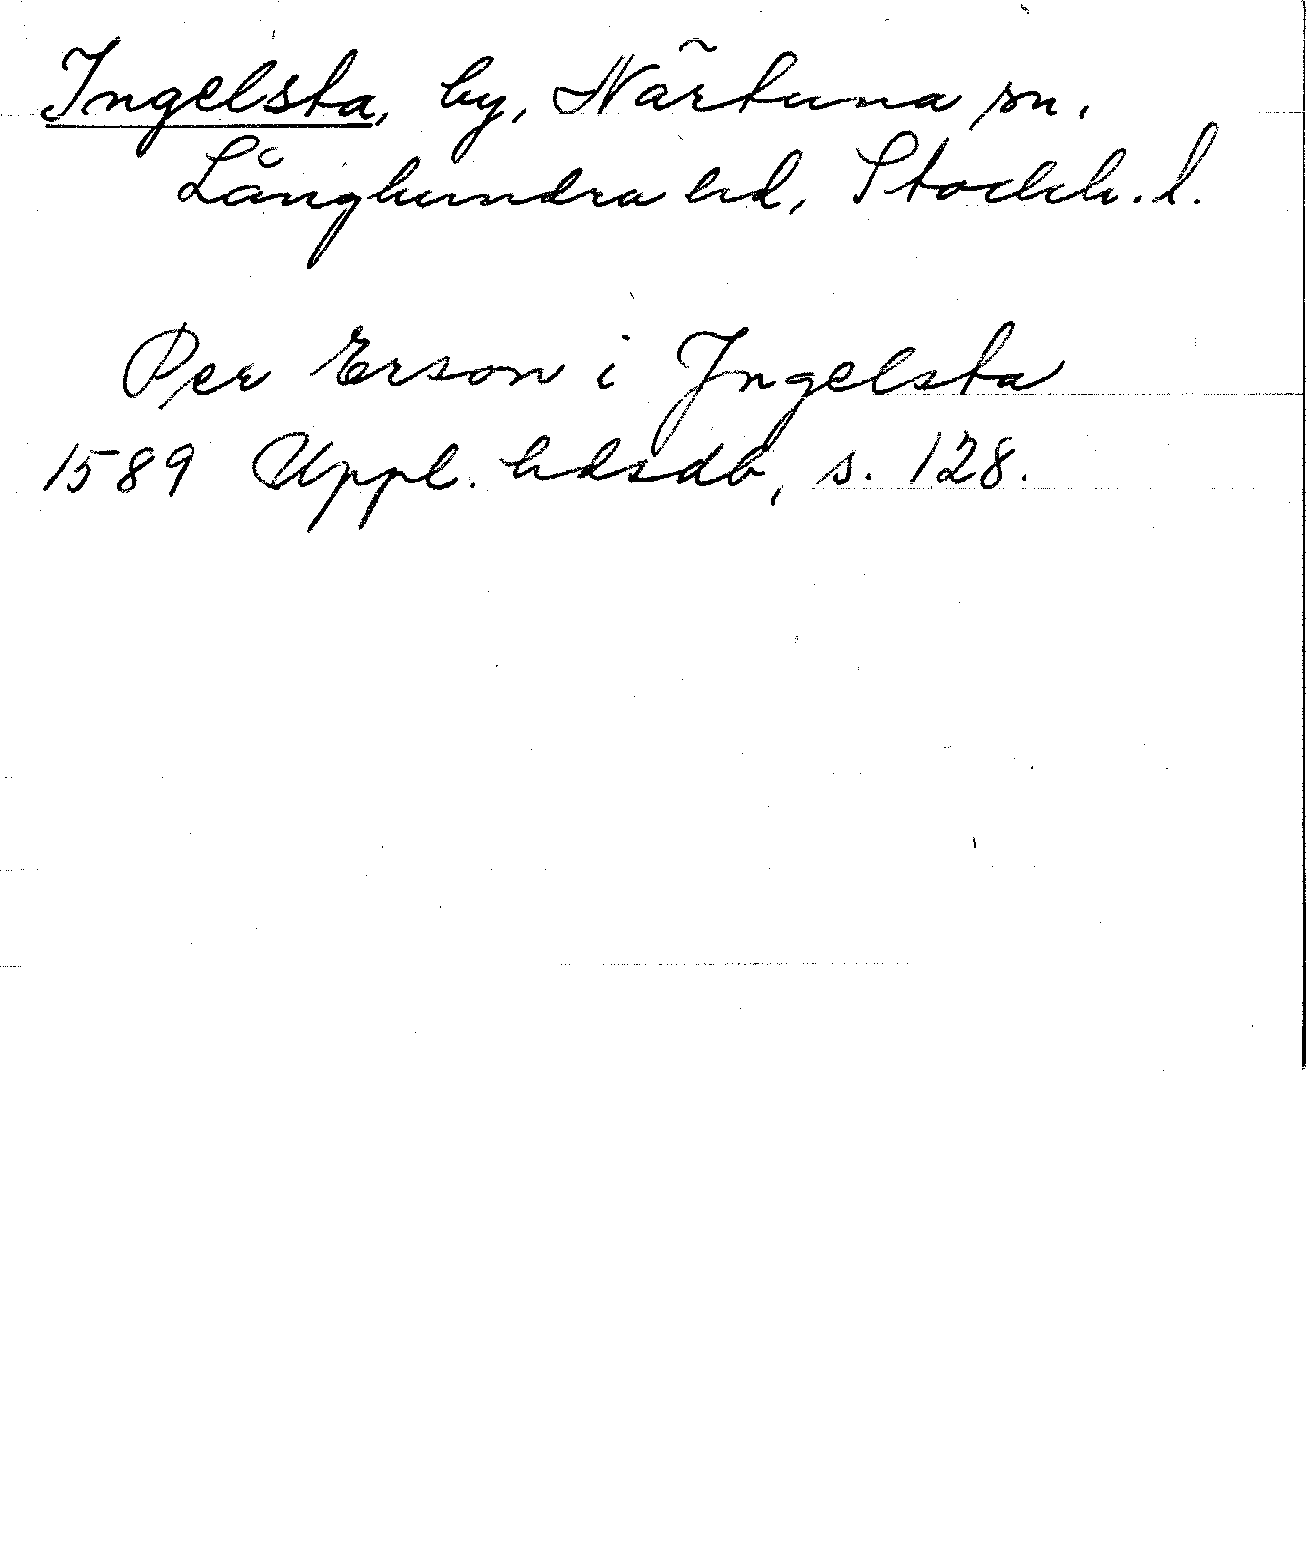 Ingelsta, by, Närtuna sn.
Långhundra hd, Stockh. l.
Per Erson i Ingelsta
1589 Uppl. hdsdb, s. 128.